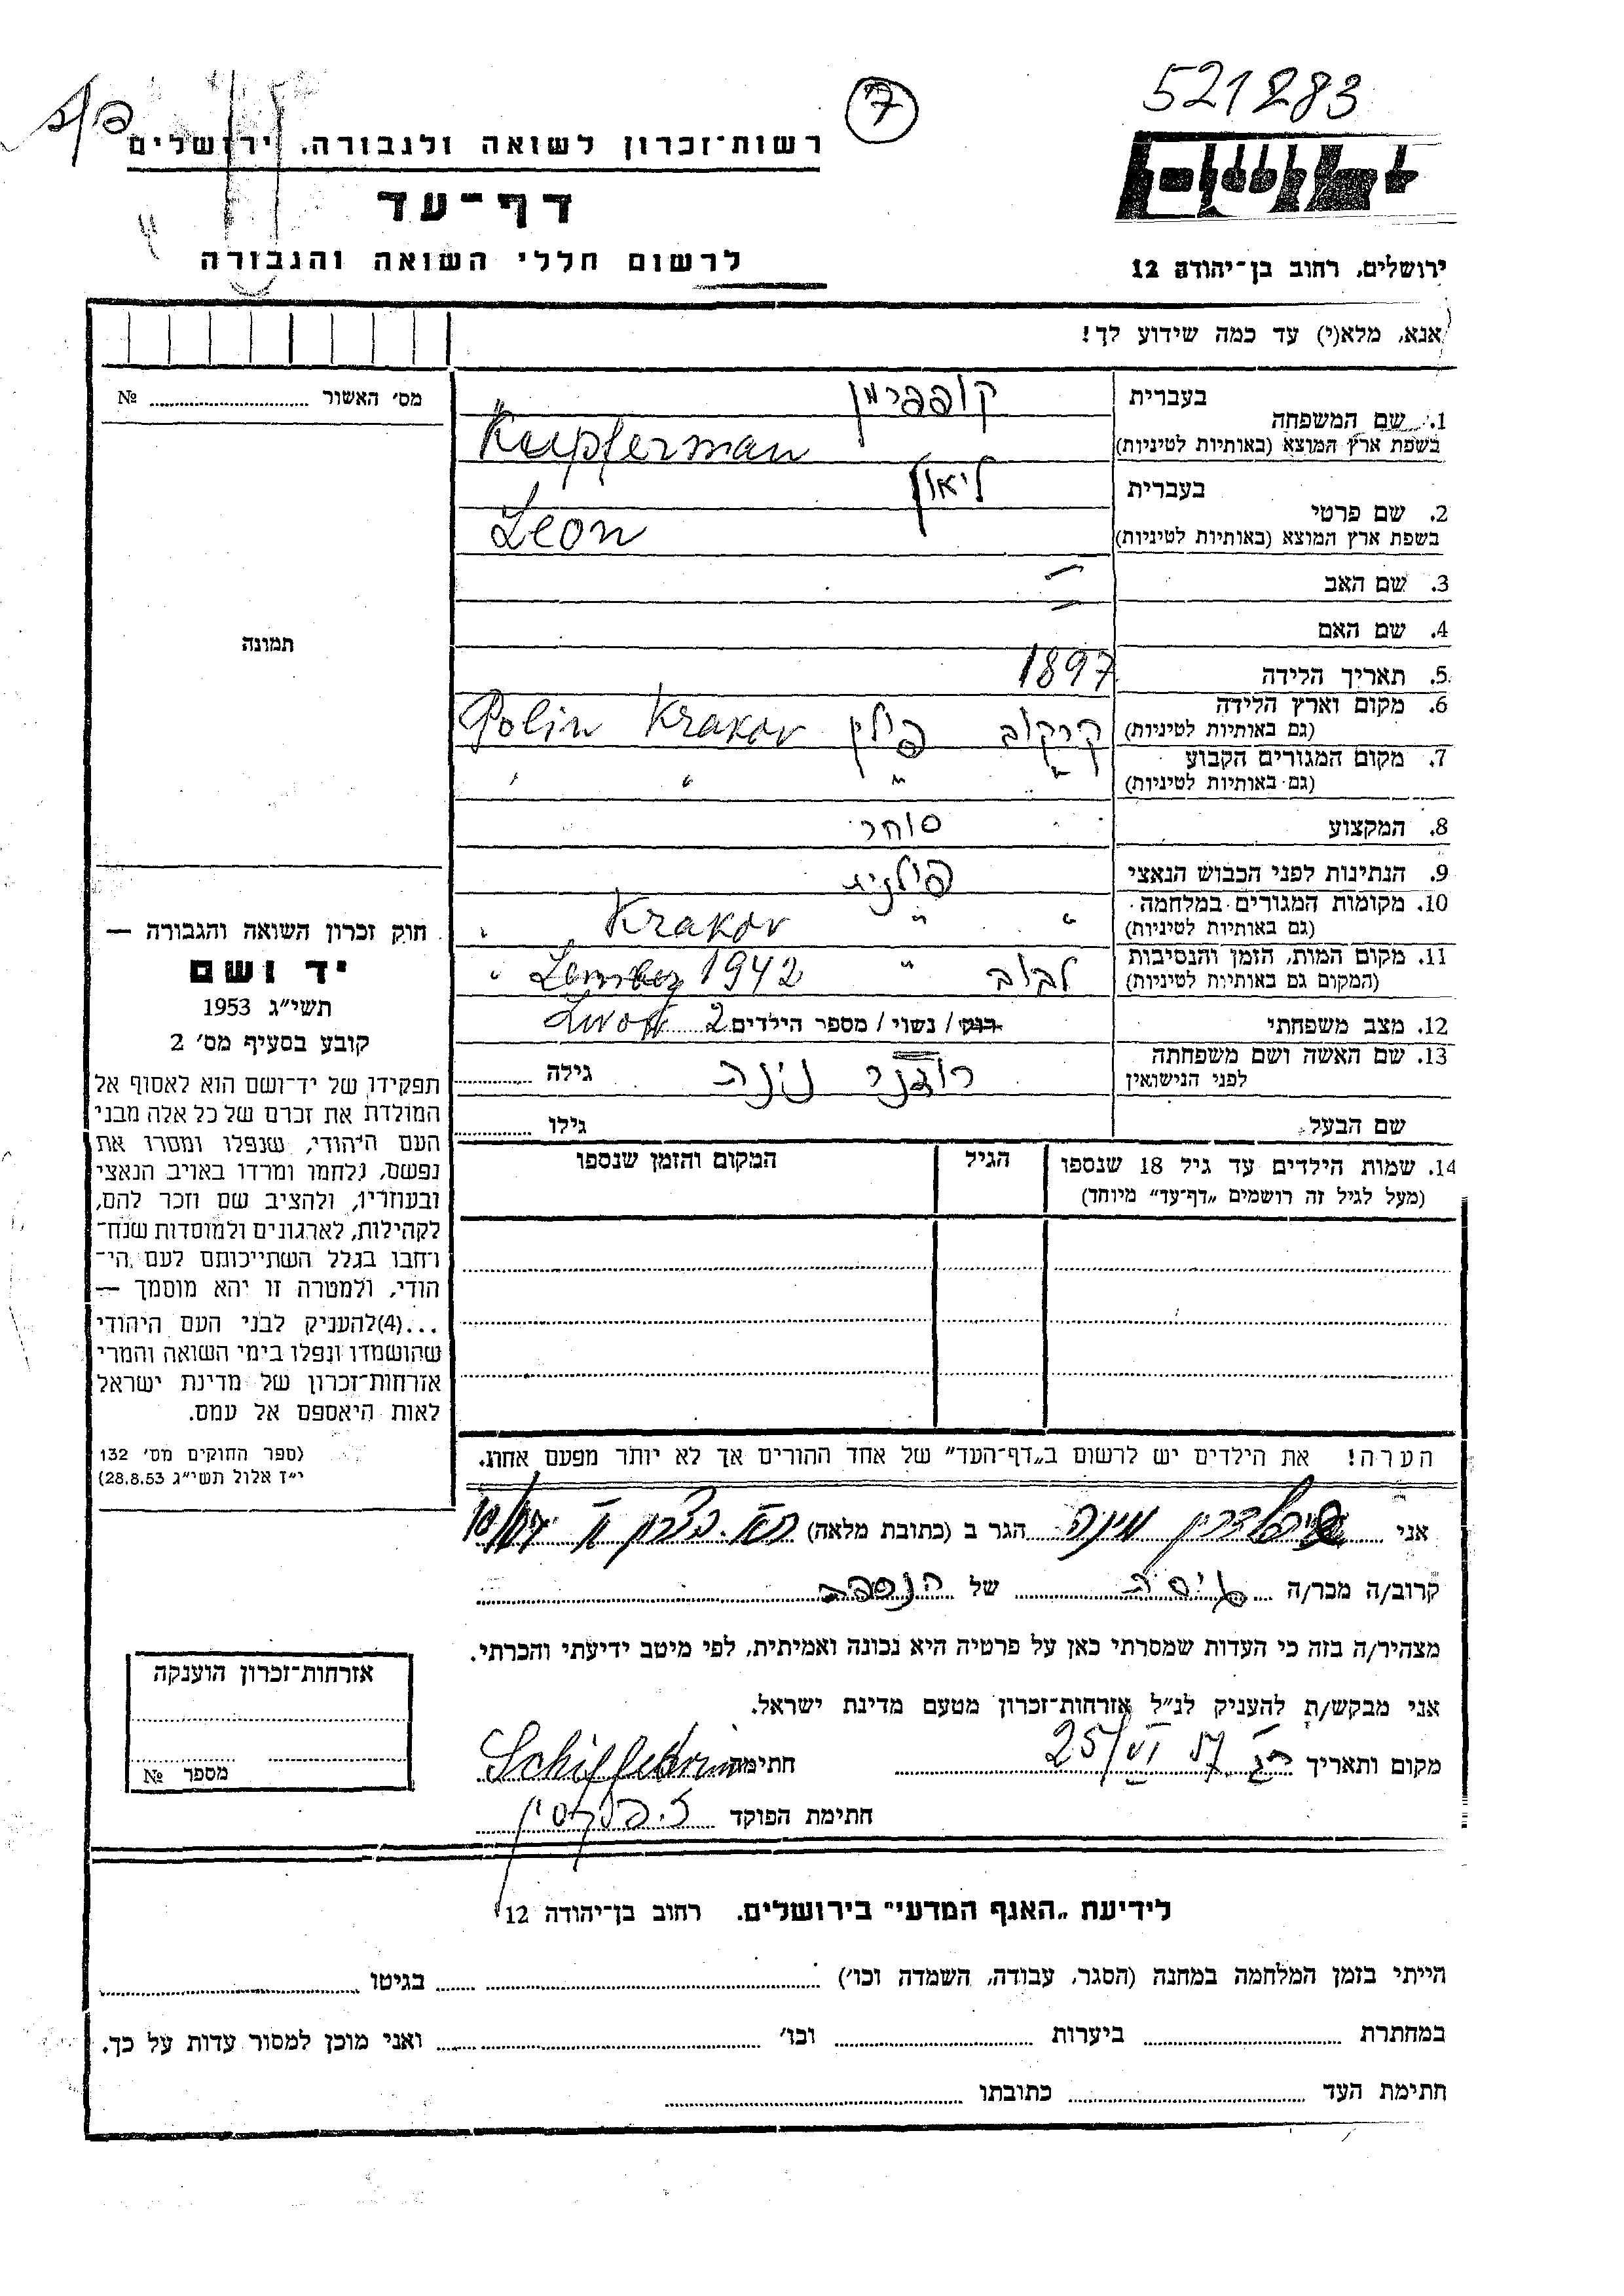 521283
7
רשות־זכרון לשואה ולגבורה, ירושלים
דף־עד
לרשום חללי השואה והגבורה
ירושלים, רחוב בן־יהודה 12
אנא, מלא(י) עד כמה שידוע לך!
מס׳ האשור ........ №
בעברית קופפרימן
1. שם המשפחה
בשפת ארץ המוצא (באותיות לטיניות) Kupferman
בעברית ליאון
2. שם פרטי
בשפת ארץ המוצא (באותיות לטיניות) Leon
3. שם האב —
4. שם האם —
תמונה
5. תאריך הלידה 1897
6. מקום וארץ הלידה
(גם באותיות לטיניות) קרקוב פולין Krakov Polin
7. מקום המגורים הקבוע
(גם באותיות לטיניות) " " " "
8. המקצוע סוחר
9. הנתינות לפני הכבוש הנאצי פולנית
10. מקומות המגורים במלחמה
(גם באותיות לטיניות) " " Krakov "
11. מקום המות, הזמן והנסיבות
(המקום גם באותיות לטיניות) לבוב " Lemberg 1942 "
12. מצב משפחתי רווק / נשוי / מספר הילדים 2 Lwow
13. שם האשה ושם משפחתה
לפני הנישואין נינה גילה ........
שם הבעל גילו ........
14. שמות הילדים עד גיל 18 שנספו
(מעל לגיל זה רושמים „דף־עד" מיוחד)
הגיל
המקום והזמן שנספו
חוק זכרון השואה והגבורה —
יד ושם
תשי״ג 1953
קובע בסעיף מס׳ 2
תפקידו של יד־ושם הוא לאסוף אל
המולדת את זכרם של כל אלה מבני
העם היהודי, שנפלו ומסרו את
נפשם, נלחמו ומרדו באויב הנאצי
ובעוזריו, ולהציב שם וזכר להם,
לקהילות, לארגונים ולמוסדות שנח־
רחבו בגלל השתייכותם לעם הי־
הודי, ולמטרה זו יהא מוסמך —
...(4)להעניק לבני העם היהודי
שהושמדו ונפלו בימי השואה והמרי
אזרחות־זכרון של מדינת ישראל
לאות היאספם אל עמם.
(ספר החוקים מס׳ 132
י״ז אלול תשי״ג 28.8.53)
הערה! את הילדים יש לרשום ב„דף־העד" של אחד ההורים אך לא יותר מפעם אחת.
אני שיפלדרין מינה הגר ב (כתובת מלאה)
קרוב/ה מכר/ה גיסה של הנספה
מצהיר/ה בזה כי העדות שמסרתי כאן על פרטיה היא נכונה ואמיתית, לפי מיטב ידיעתי והכרתי.
אני מבקש/ת להעניק לנ״ל אזרחות־זכרון מטעם מדינת ישראל.
מקום ותאריך רג 25/VI 57 חתימה
חתימת הפוקד
אזרחות־זכרון הוענקה
מספר №
לידיעת „האגף המדעי" בירושלים, רחוב בן־יהודה 12
הייתי בזמן המלחמה במחנה (הסגר, עבודה, השמדה וכו׳) ........ בגיטו ........
במחתרת ........ ביערות ........ וכו׳ ........ ואני מוכן למסור עדות על כך.
חתימת העד ........ כתובתו ........